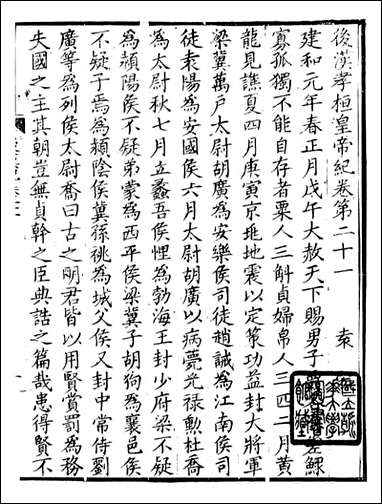 後漢孝桓皇帝紀卷第二十一 袁
建和元年春正月戊午大赦天下賜男子鰥
寡孤獨不能自存者粟人三斛貞婦帛人三匹二月黃
龍見譙夏四月庚寅京師地震以定策功益封大將軍
梁冀萬戶太尉胡廣為安樂侯司徒趙誡為江南侯司
徒袁陽為安國侯六月太尉胡廣以病薨光祿勲杜喬
為太尉秋七月立蠡吾侯悝為勃海王封少府梁不疑
為頴陽侯不疑弟蒙為西平侯梁冀子胡狗為襄邑侯
不疑子焉為頴陰侯冀孫祧為城父侯又封中常侍劉
廣等為列侯太尉喬曰古之明君皆以用賢賞罰為務
失國之主其朝豈無貞幹之臣典誥之篇哉患得賢不